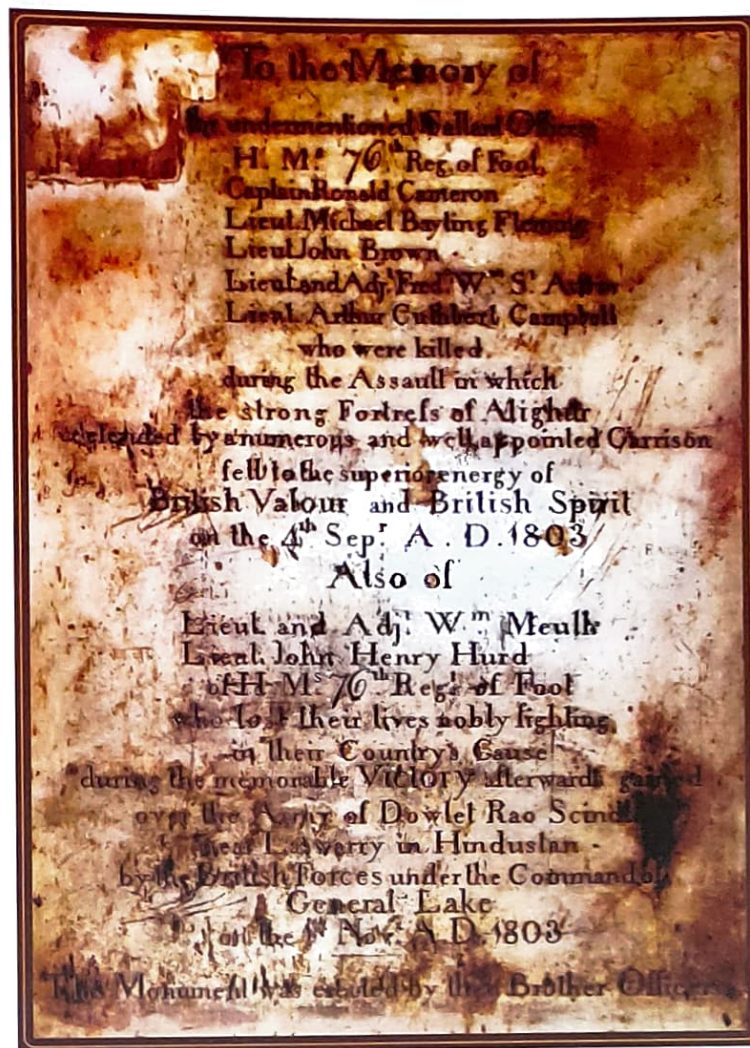 To the Memory of
the undermentioned Gallant Officers
H. M.s 76th Reg. of Foot,
Captain Ronald Cameron
Lieut. Michael Bayling Fleming
Lieut. John Brown
Lieut. and Adj.t Fred. Wm. St.
Lieut. Arthur Cuthbert Campbell
who were killed
during the Assault in which
the strong Fortreſs of Alighur
defended by a numerous and well appointed Garrison
fell to the superior energy of
British Valour and British Spirit
on the 4th Sepr. A. D. 1803
Also of
Lieut. and Adjt. Wm. Meulh
Lieut. John Henry Hurd
of H. M.s 76th Regt. of Foot
who lost their lives nobly fighting
in their Country's Cause
during the memorable Victory afterwards gained
over the Army of Dowlet Rao
near Laswerry in Hindustan
by the British Forces under the Command of
General Lake
on the 1st Novr. A. D. 1803
This Monument was erected by their Brother Officers